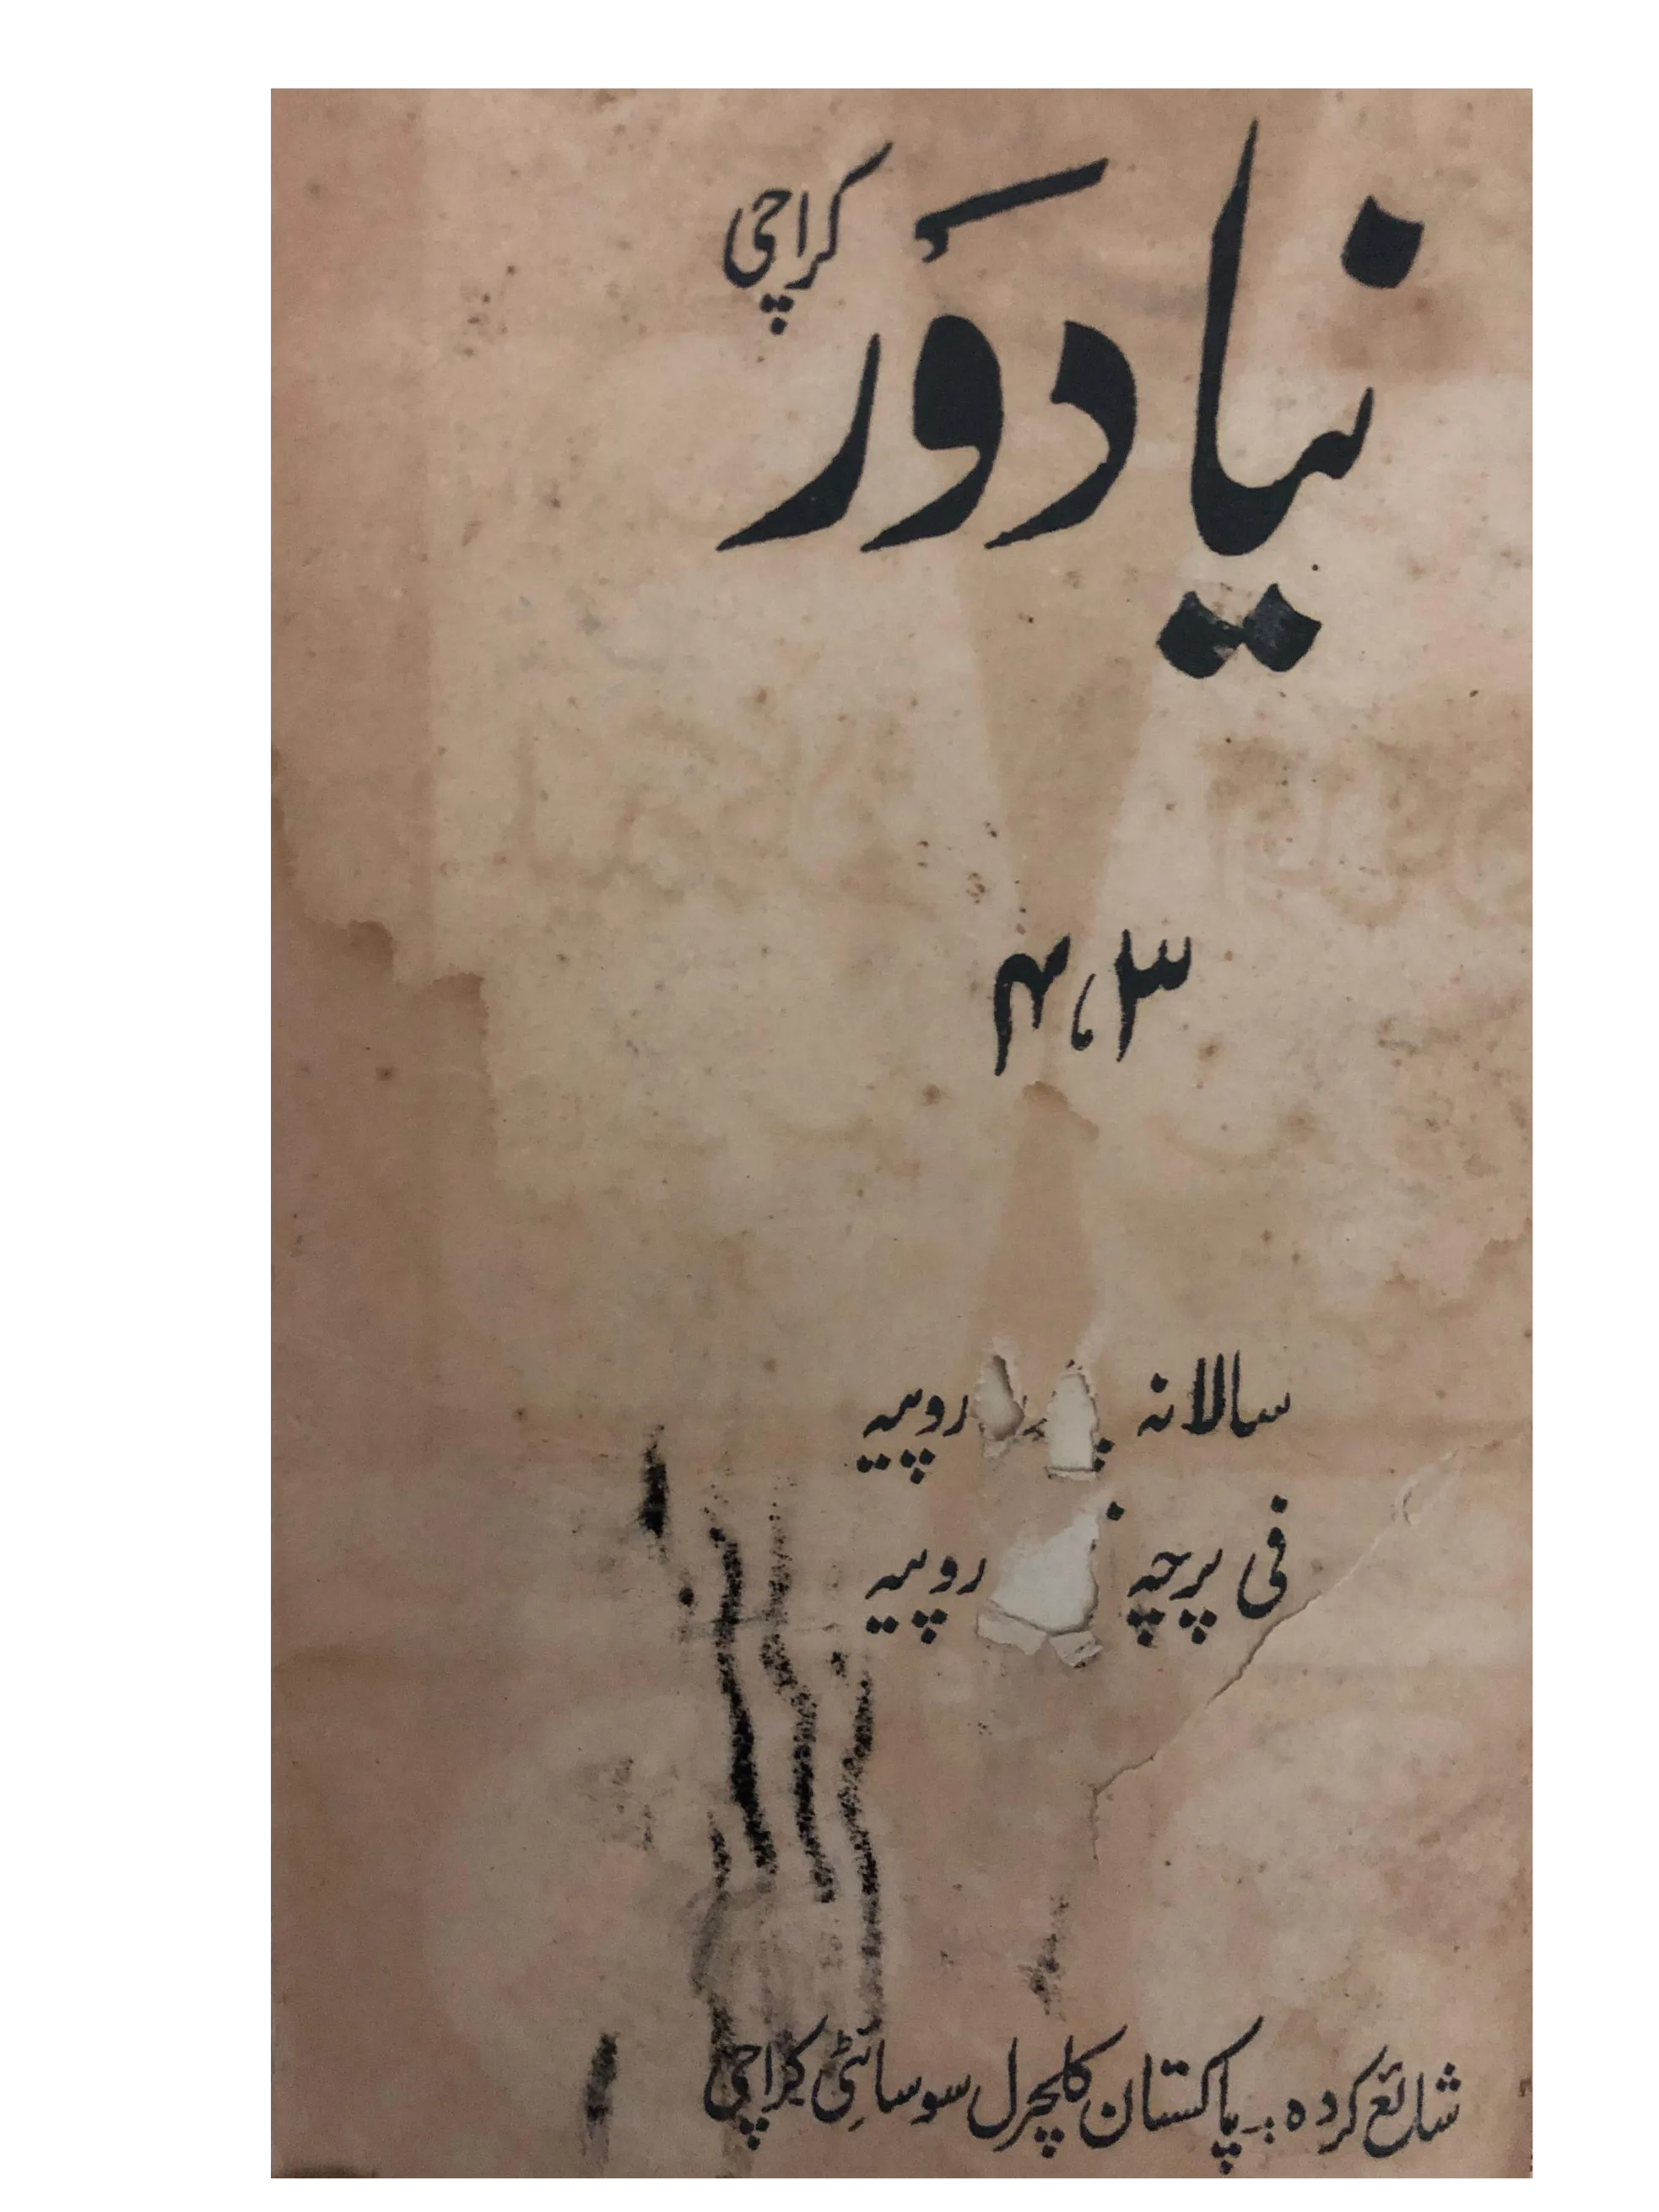 نیا دَور کراچی
۳، ۴
سالانہ روپیہ
فی پرچہ روپیہ
شائع کردہ :۔ پاکستان کلچرل سوسائٹی کراچی